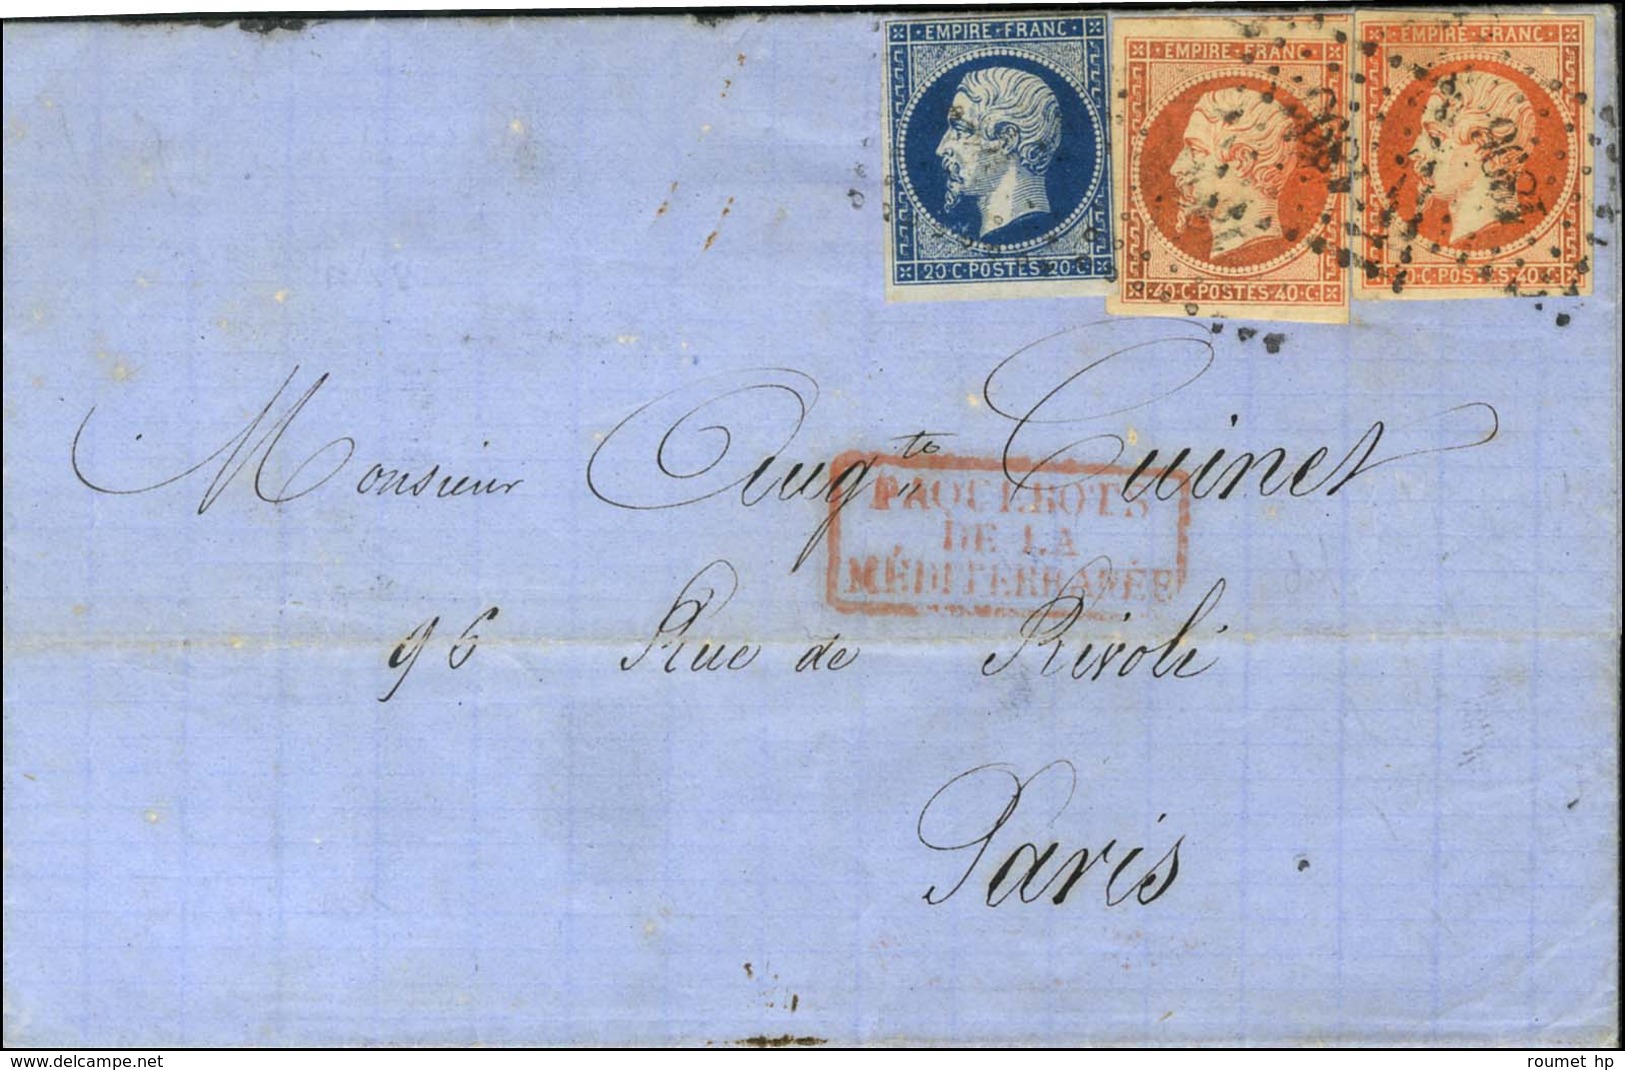 EMPIRE·FRANC·
20·C·POSTES·20·C·
EMPIRE·FRANC·
40·C·POSTES·40·C·
EMPIRE·FRANC·
40·C·POSTES·40·C·
Monsieur Aug.te Cuinet
PAQUEBOTS
DE LA
MÉDITERRANÉE
96 Rue de Rivoli
Paris
www.delcampe.net
roumet hp